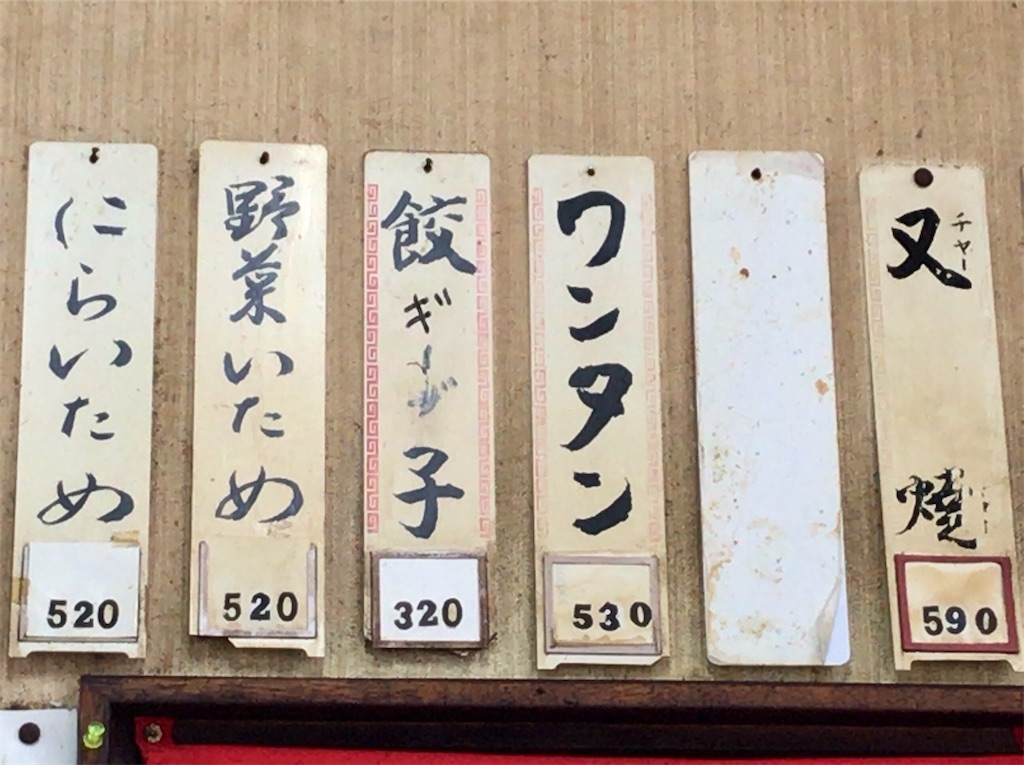 にらいため
520
野菜いため
520
餃ギョーザ子
320
ワンタン
530
叉
チャー
燒
590